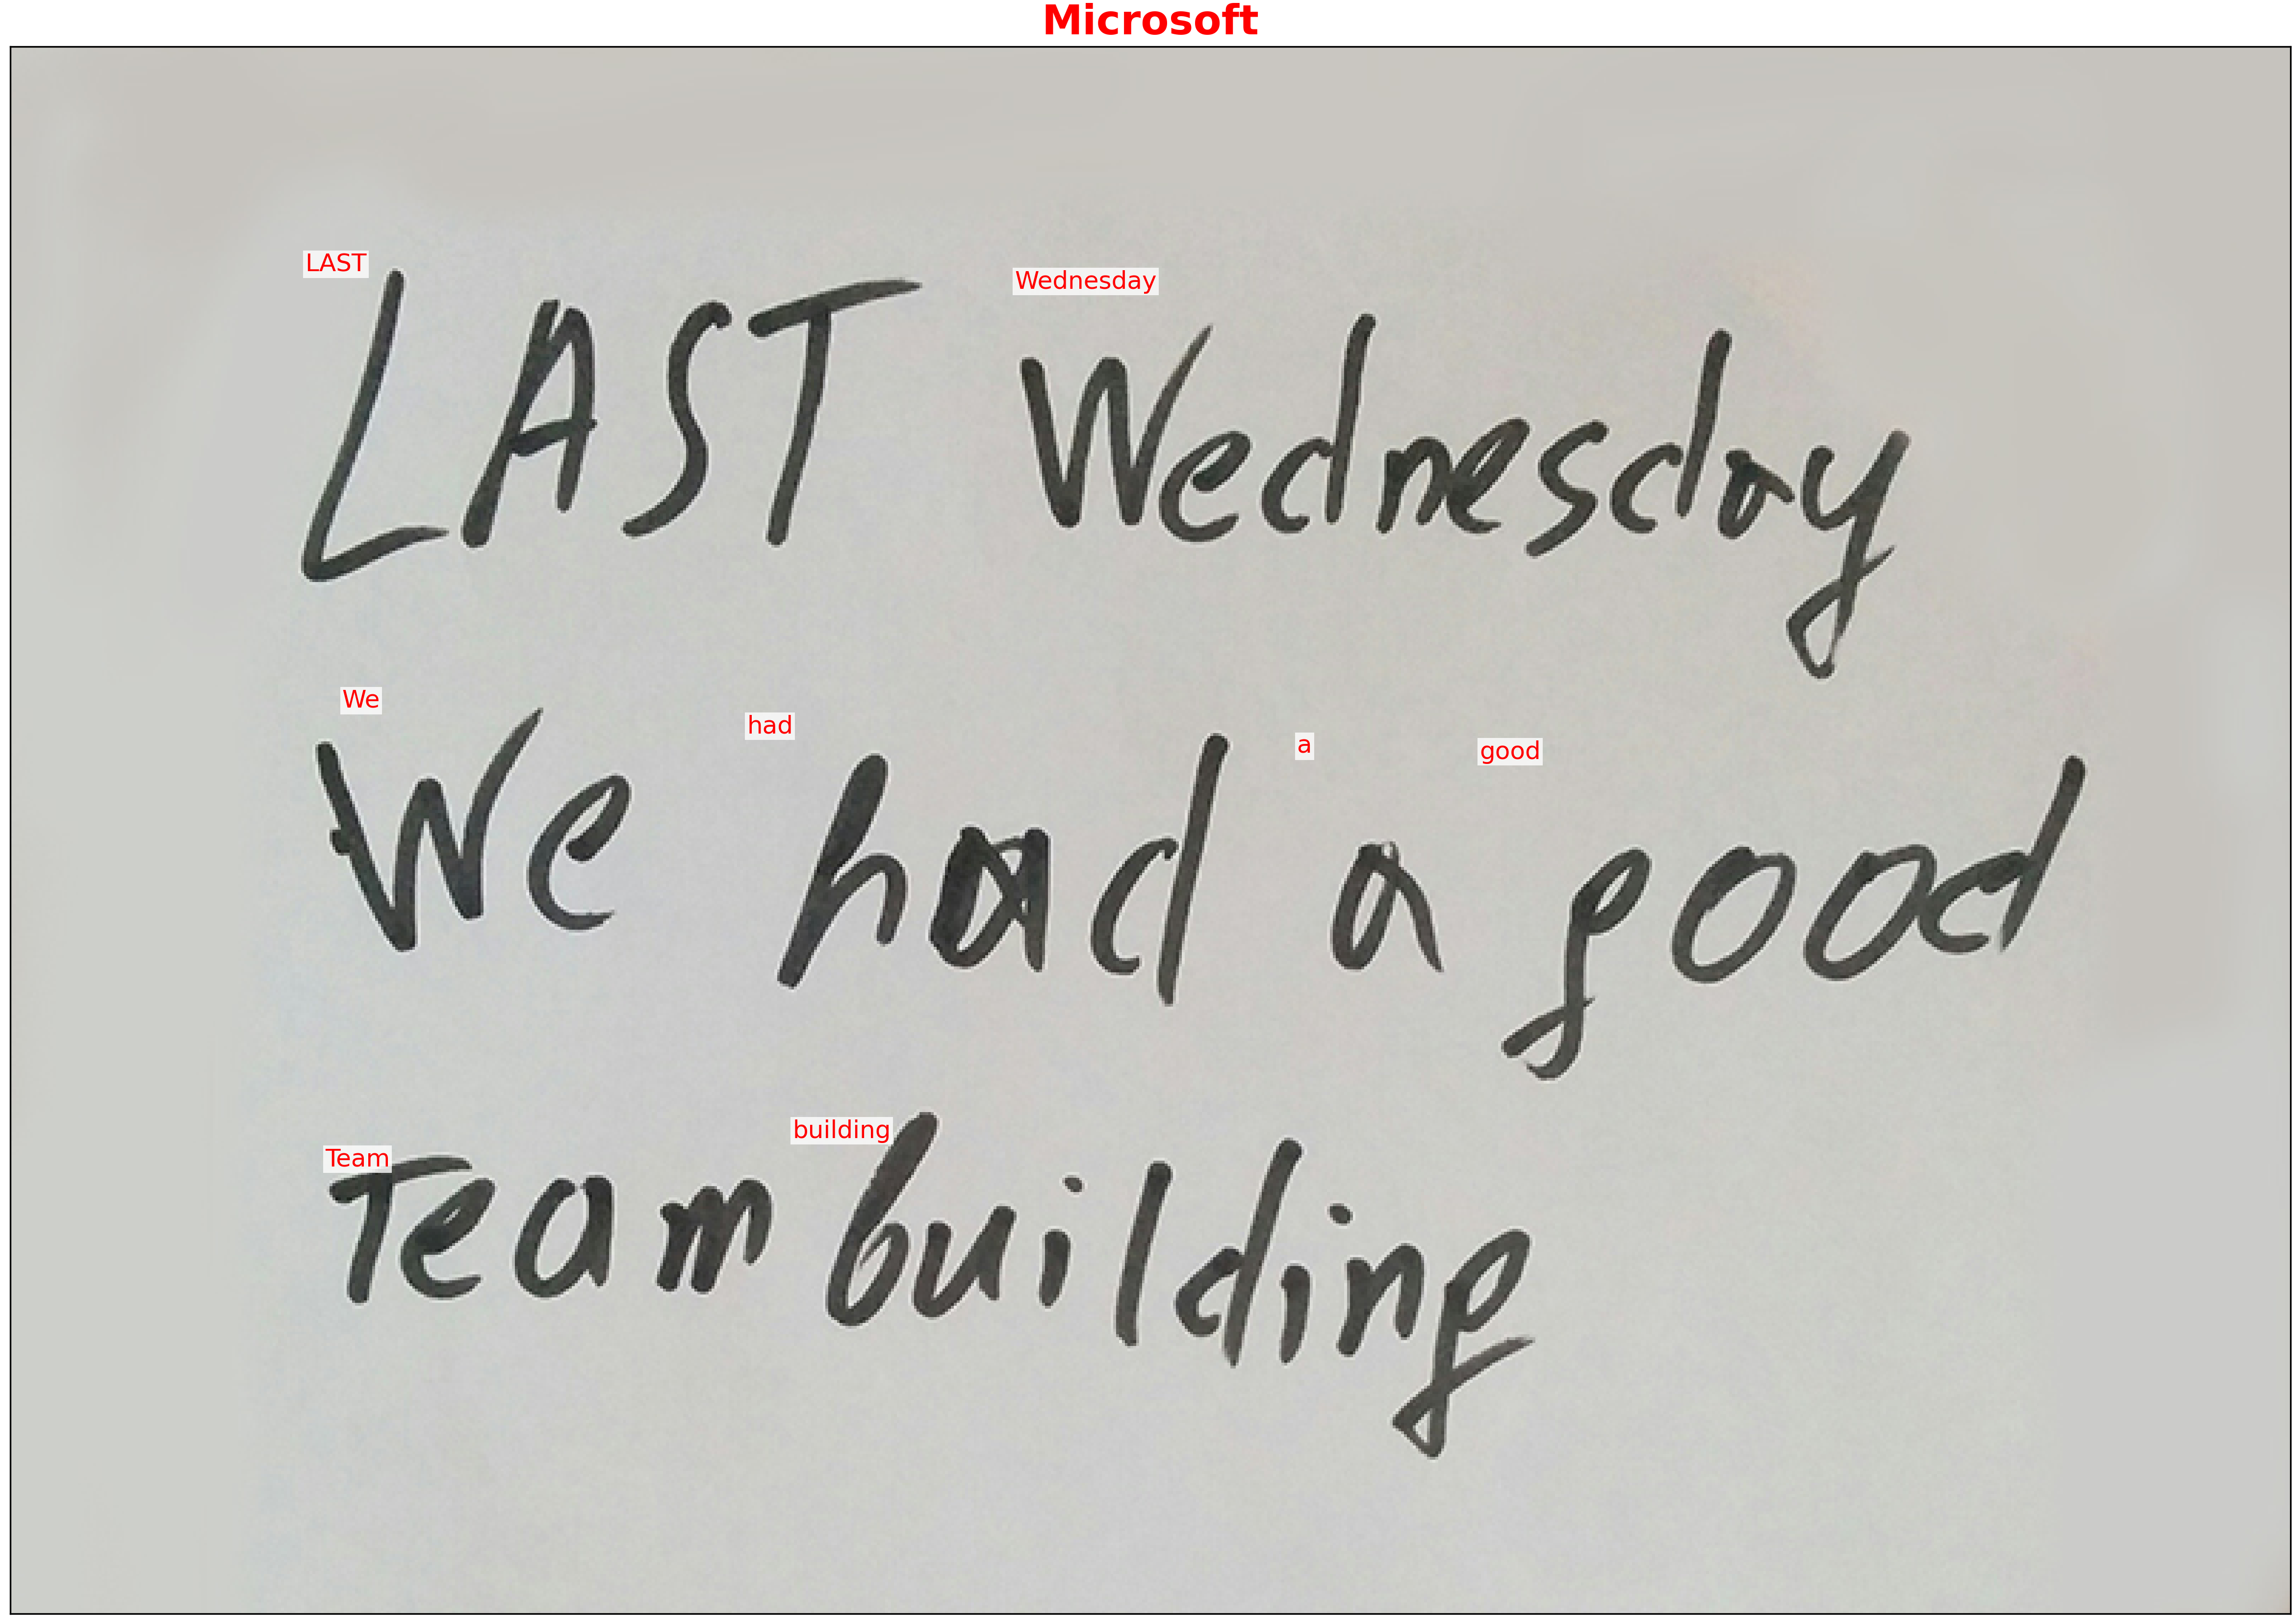 Microsoft
LAST Wednesday
LAST Wednesday
We had a good
We had a good
Team building
Team building